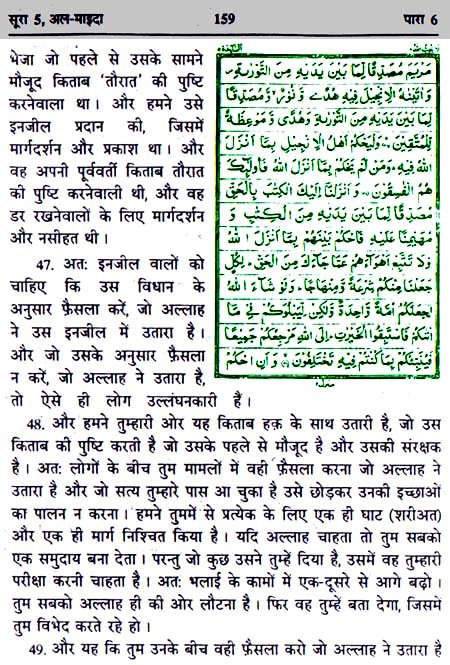 सूरा 5, अल-माइदा 159 पारा 6
भेजा जो पहले से उसके सामने
मौजूद किताब 'तौरात' की पुष्टि
करनेवाला था। और हमने उसे
इनजील प्रदान की, जिसमें
मार्गदर्शन और प्रकाश था। और
वह अपनी पूर्ववर्ती किताब तौरात
की पुष्टि करनेवाली थी, और वह
डर रखनेवालों के लिए मार्गदर्शन
और नसीहत थी।
47. अतः इनजील वालों को
चाहिए कि उस विधान के
अनुसार फ़ैसला करें, जो अल्लाह
ने उस इनजील में उतारा है।
और जो उसके अनुसार फ़ैसला
न करें, जो अल्लाह ने उतारा है,
तो ऐसे ही लोग उल्लंघनकारी हैं।
مَرْيَمَ مُصَدِّقًا لِّمَا بَيْنَ يَدَيْهِ مِنَ التَّوْرٰىةِ
وَاٰتَيْنٰهُ الْاِنْجِيْلَ فِيْهِ هُدًى وَّنُوْرٌ وَّمُصَدِّقًا
لِّمَا بَيْنَ يَدَيْهِ مِنَ التَّوْرٰىةِ وَهُدًى وَّمَوْعِظَةً
لِّلْمُتَّقِيْنَ وَلْيَحْكُمْ اَهْلُ الْاِنْجِيْلِ بِمَا اَنْزَلَ
اللّٰهُ فِيْهِ وَمَنْ لَّمْ يَحْكُمْ بِمَا اَنْزَلَ اللّٰهُ فَاُولٰٓئِكَ
هُمُ الْفٰسِقُوْنَ وَاَنْزَلْنَا اِلَيْكَ الْكِتٰبَ بِالْحَقِّ
مُصَدِّقًا لِّمَا بَيْنَ يَدَيْهِ مِنَ الْكِتٰبِ وَ
مُهَيْمِنًا عَلَيْهِ فَاحْكُمْ بَيْنَهُمْ بِمَا اَنْزَلَ اللّٰهُ
وَلَا تَتَّبِعْ اَهْوَآءَهُمْ عَمَّا جَآءَكَ مِنَ الْحَقِّ لِكُلٍّ
جَعَلْنَا مِنْكُمْ شِرْعَةً وَّمِنْهَاجًا وَلَوْ شَآءَ اللّٰهُ
لَجَعَلَكُمْ اُمَّةً وَّاحِدَةً وَّلٰكِنْ لِّيَبْلُوَكُمْ فِيْ مَآ
اٰتٰىكُمْ فَاسْتَبِقُوا الْخَيْرٰتِ اِلَى اللّٰهِ مَرْجِعُكُمْ جَمِيْعًا
فَيُنَبِّئُكُمْ بِمَا كُنْتُمْ فِيْهِ تَخْتَلِفُوْنَ وَاَنِ احْكُمْ
48. और हमने तुम्हारी ओर यह किताब हक़ के साथ उतारी है, जो उस
किताब की पुष्टि करती है जो उसके पहले से मौजूद है और उसकी संरक्षक
है। अतः लोगों के बीच तुम मामलों में वही फ़ैसला करना जो अल्लाह ने
उतारा है और जो सत्य तुम्हारे पास आ चुका है उसे छोड़कर उनकी इच्छाओं
का पालन न करना। हमने तुममें से प्रत्येक के लिए एक ही घाट (शरीअत)
और एक ही मार्ग निश्चित किया है। यदि अल्लाह चाहता तो तुम सबको
एक समुदाय बना देता। परन्तु जो कुछ उसने तुम्हें दिया है, उसमें वह तुम्हारी
परीक्षा करनी चाहता है। अतः भलाई के कामों में एक-दूसरे से आगे बढ़ो।
तुम सबको अल्लाह ही की ओर लौटना है। फिर वह तुम्हें बता देगा, जिसमें
तुम विभेद करते रहे हो।
49. और यह कि तुम उनके बीच वही फ़ैसला करो जो अल्लाह ने उतारा है